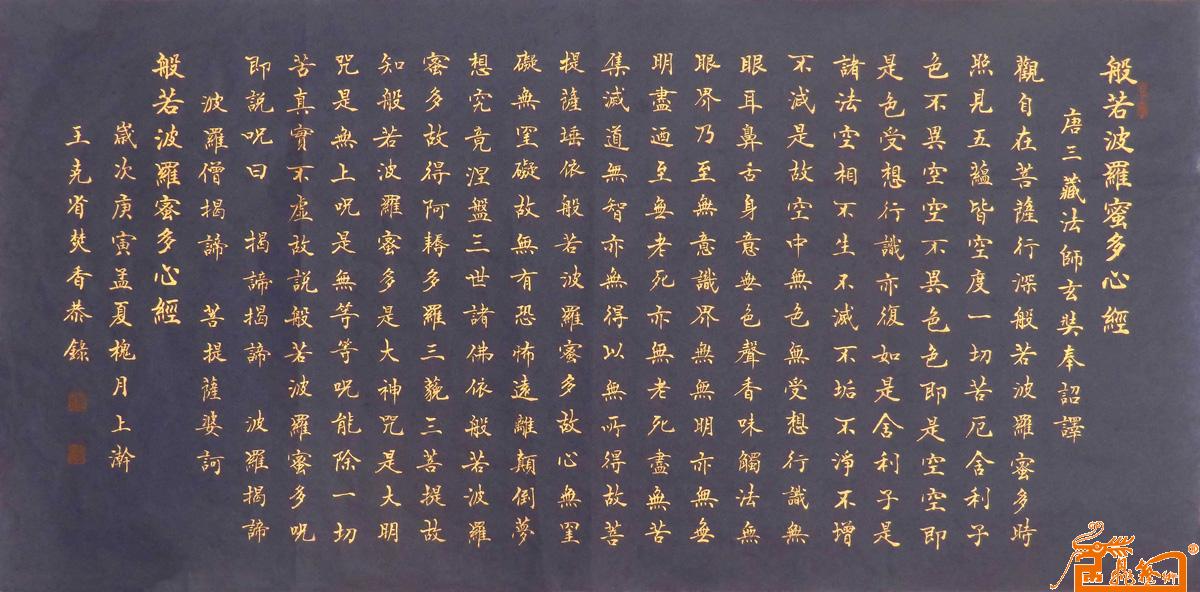 般若波羅蜜多心經
唐三藏法師玄奘奉詔譯
觀自在菩薩行深般若波羅蜜多時
照見五蘊皆空度一切苦厄舍利子
色不異空空不異色色即是空空即
是色受想行識亦復如是舍利子是
諸法空相不生不滅不垢不淨不增
不減是故空中無色無受想行識無
眼耳鼻舌身意無色聲香味觸法無
眼界乃至無意識界無無明亦無無
明盡廼至無老死亦無老死盡無苦
集滅道無智亦無得以無所得故菩
提薩埵依般若波羅蜜多故心無罣
礙無罣礙故無有恐怖遠離顛倒夢
想究竟涅盤三世諸佛依般若波羅
蜜多故得阿耨多羅三藐三菩提故
知般若波羅蜜多是大神咒是大明
咒是無上咒是無等等咒能除一切
苦真實不虛故説般若波羅蜜多呪
即説呪曰 揭諦揭諦 波羅揭諦
波羅僧揭諦 菩提薩婆訶
般若波羅蜜多心經
歲次庚寅孟夏槐月上澣
王克省焚香恭錄